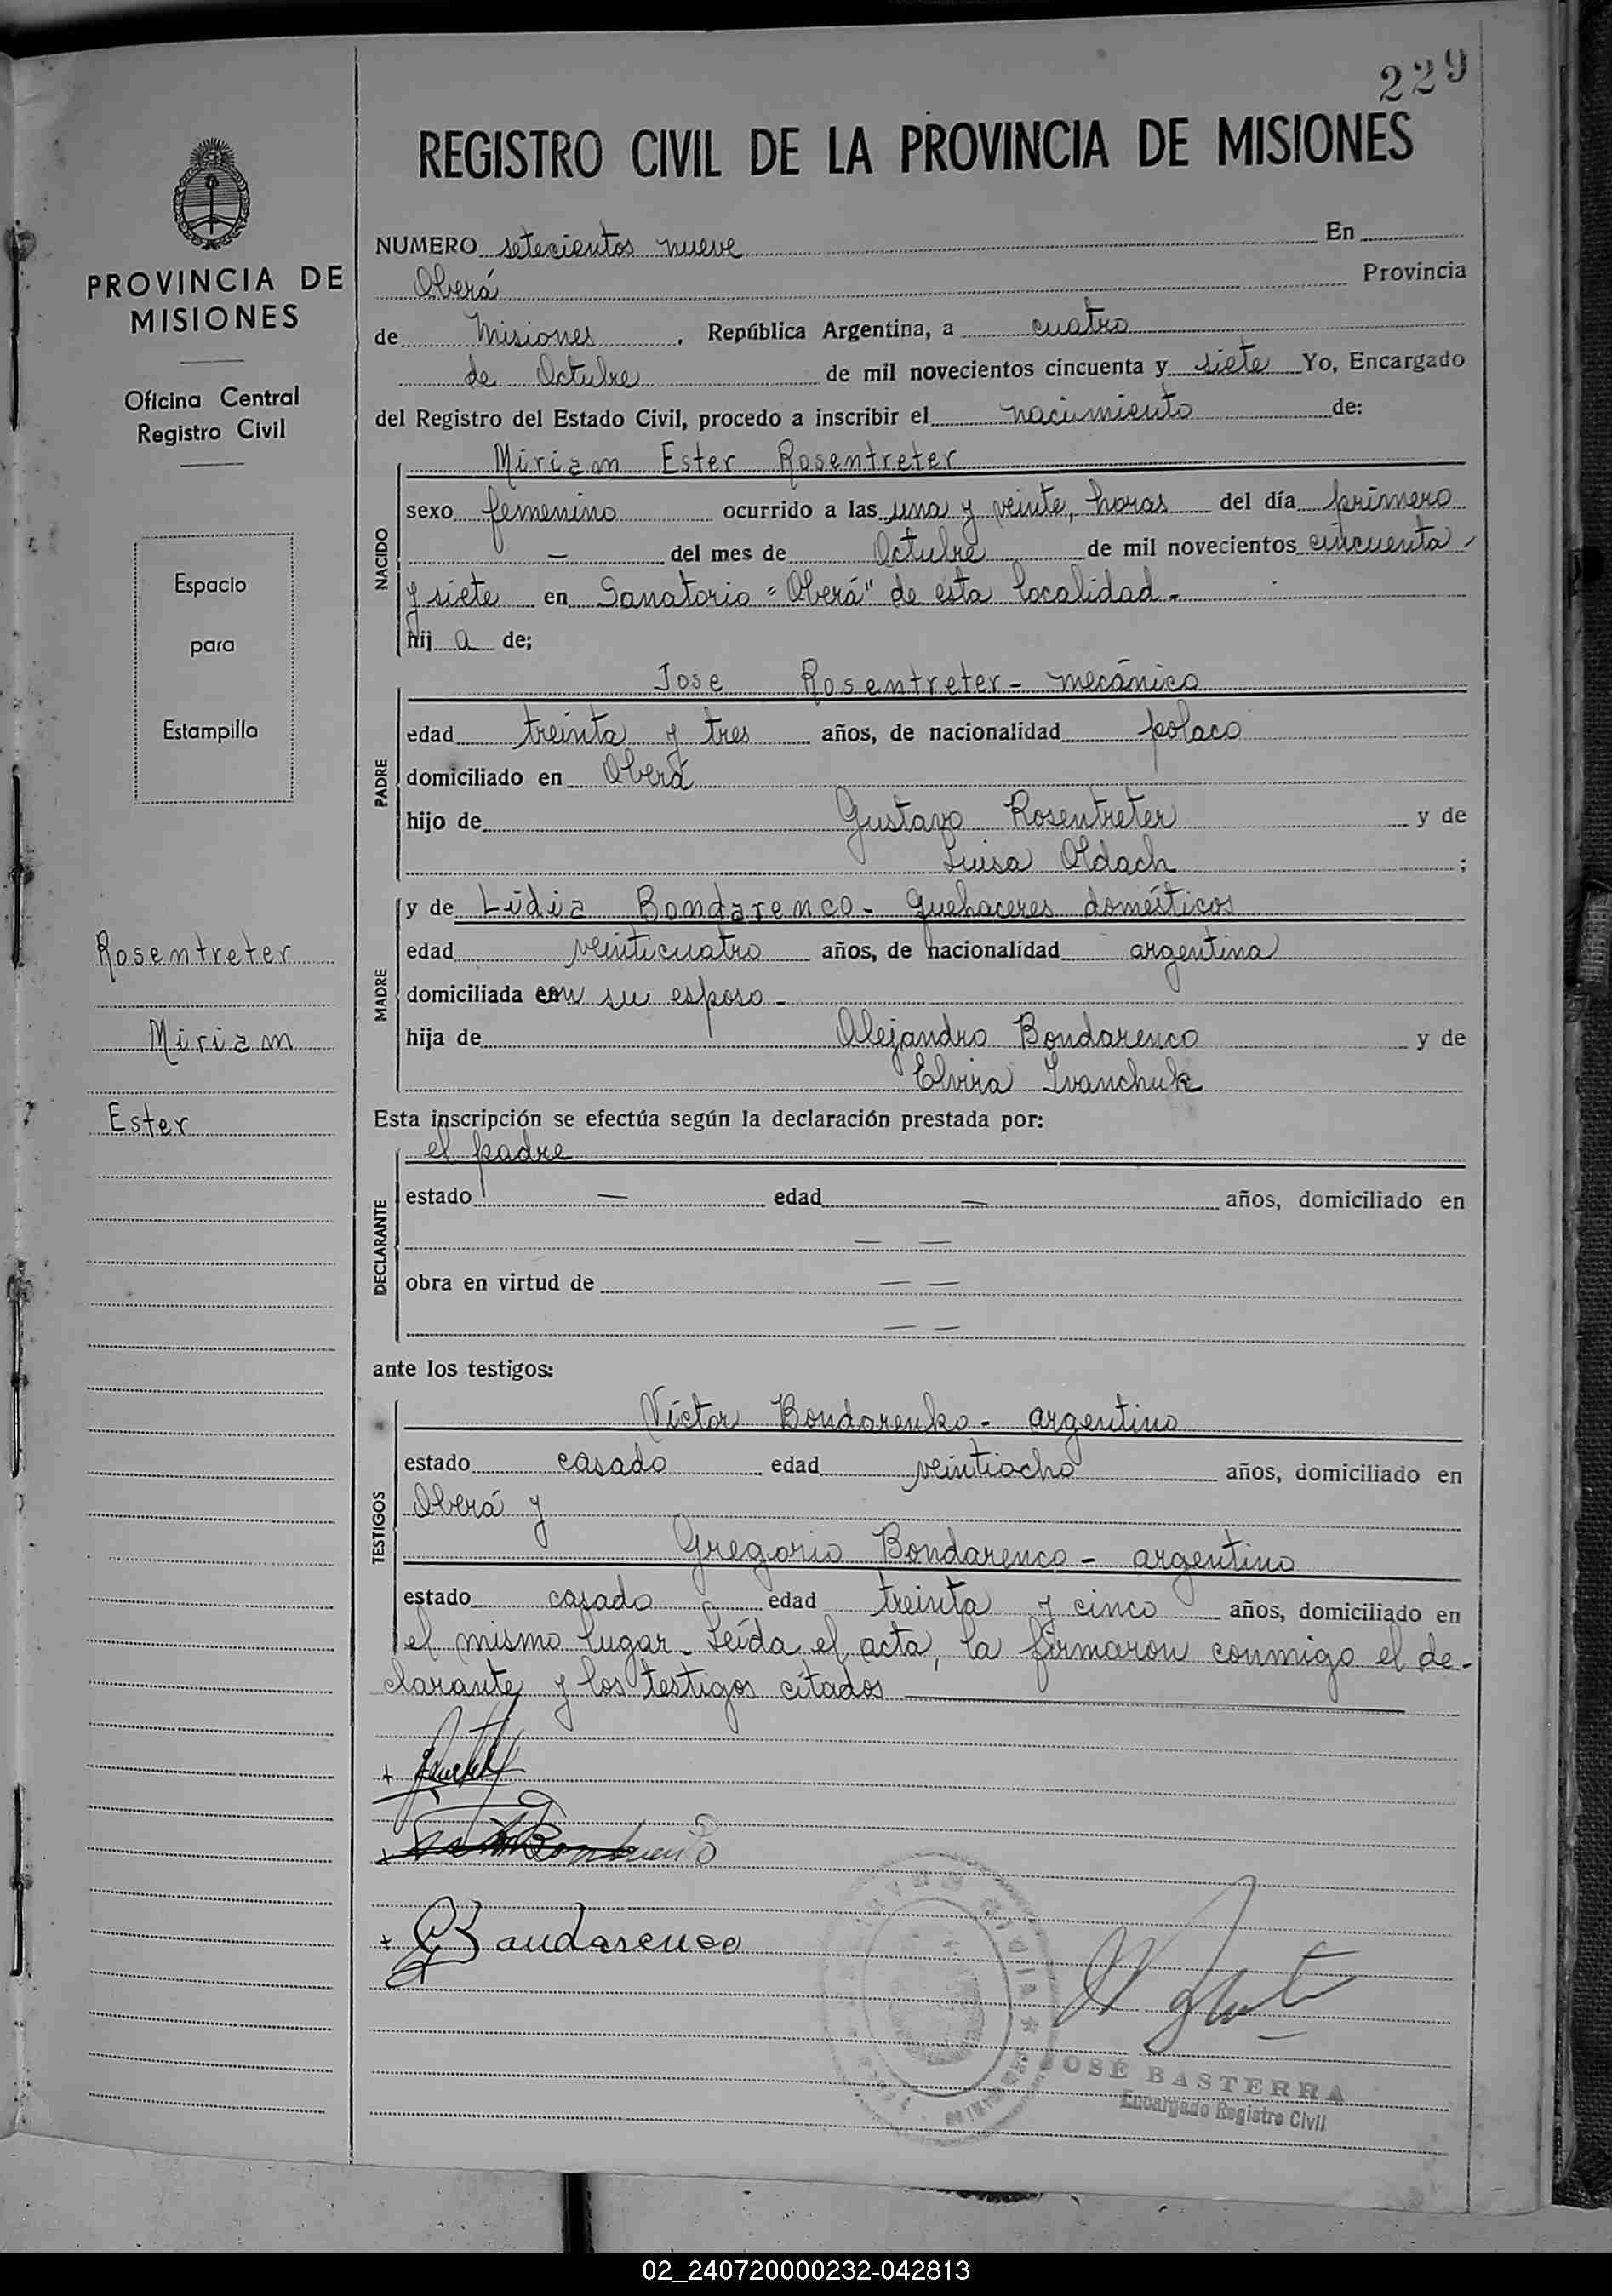 229
REGISTRO CIVIL DE LA PROVINCIA DE MISIONES
PROVINCIA DE
MISIONES
Oficina Central
Registro Civil
Espacio
para
Estampilla
Rosentreter
Miriam
Ester
NUMERO setecientos nueve En
Oberá Provincia
de Misiones, República Argentina, a cuatro
de Octubre de mil novecientos cincuenta y siete Yo, Encargado
del Registro del Estado Civil, procedo a inscribir el nacimiento de:
NACIDO
Miriam Ester Rosentreter
sexo femenino ocurrido a las una y veinte, horas del día primero
— del mes de Octubre de mil novecientos cincuenta
y siete en Sanatorio "Oberá" de esta localidad.-
hij a de;
PADRE
Jose Rosentreter - mecánico
edad treinta y tres años, de nacionalidad polaco
domiciliado en Oberá
hijo de Gustavo Rosentreter y de
Luisa Oldach ;
MADRE
y de Lidia Bondarenco - quehaceres domésticos
edad veinticuatro años, de nacionalidad argentina
domiciliada con su esposo -
hija de Alejandro Bondarenco y de
Elvira Ivanchuk
Esta inscripción se efectúa según la declaración prestada por:
DECLARANTE
el padre
estado — edad — años, domiciliado en
— —
obra en virtud de — —
— —
ante los testigos:
TESTIGOS
Víctor Bondarenko - argentino
estado casado edad veintiocho años, domiciliado en
Oberá y
Gregorio Bondarenco - argentino
estado casado edad treinta y cinco años, domiciliado en
el mismo lugar. Leída el acta, la firmaron conmigo el de-
clarante y los testigos citados
+
+
+ G Bondarenco
JOSÉ BASTERRA
Encargado Registro Civil
02_240720000232-042813